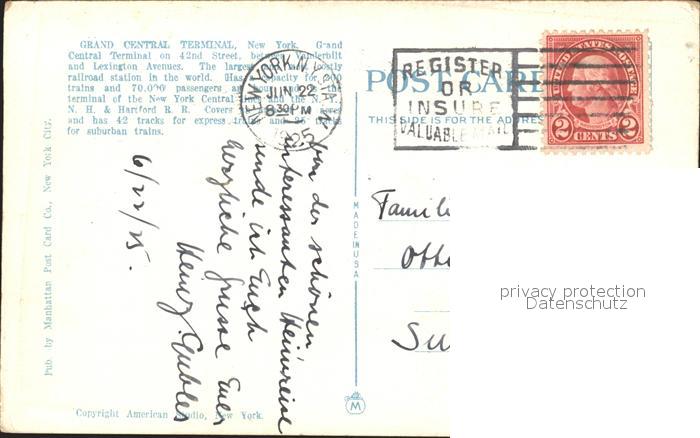 GRAND CENTRAL TERMINAL, New York. Grand
Central Terminal on 42nd Street, between Vanderbilt
and Lexington Avenues. The largest and most costly
railroad station in the world. Has capacity for
trains and 70,000 passengers an hour
terminal of the New York Central Lines and the N. Y.
N. H. & Hartford R. R. Covers
and has 42 tracks for express trains and 25 tracks
for suburban trains.
Pub. by Manhattan Post Card Co., New York City.
Copyright American Studio, New York.
MADE IN USA
M
NEW YORK, N.Y.
JUN 22
8 30 PM
1925
POST CARD
THIS SIDE IS FOR THE ADDRESS
REGISTER
OR
INSURE
VALUABLE MAIL
UNITED STATES POSTAGE
2 CENTS 2
Von der schönen,
interessanten Heimreise
sende ich Euch
herzliche Grüsse Euer
6/22/25.
Famili
Otto
Su
privacy protection
Datenschutz